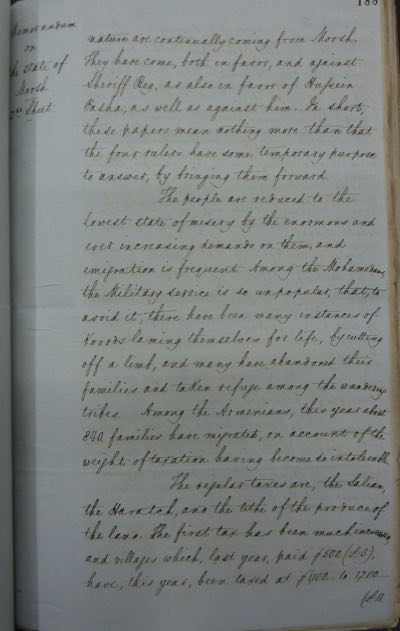 188
Memorandum
on
the state of
Moosh
2nd Sheet
nature are continually coming from Moosh.
They have come, both in favor, and against
Sheriff Beg, as also in favor of Hussein
Pasha, as well as against him. In short,
these papers mean nothing more than that
the four rulers have some temporary purpose
to answer, by bringing them forward.
The people are reduced to the
lowest state of misery by the enormous and
ever increasing demands on them, and
emigration is frequent. Among the Mohamedans,
the Military service is so unpopular, that, to
avoid it, there have been many instances of
Koords laming themselves for life, by cutting
off a limb, and many have abandoned their
families and taken refuge among the wandering
tribes. Among the Armenians, this year about
840 families have migrated, on account of the
weight of taxation having become so intolerable.
The regular taxes are, the Salian,
the Haratch, and the tithe of the produce of
the land. The first tax has been much increased,
and villages which, last year, paid p 500 (£5),
have, this year, been taxed at p 1100 to 1200
(£11